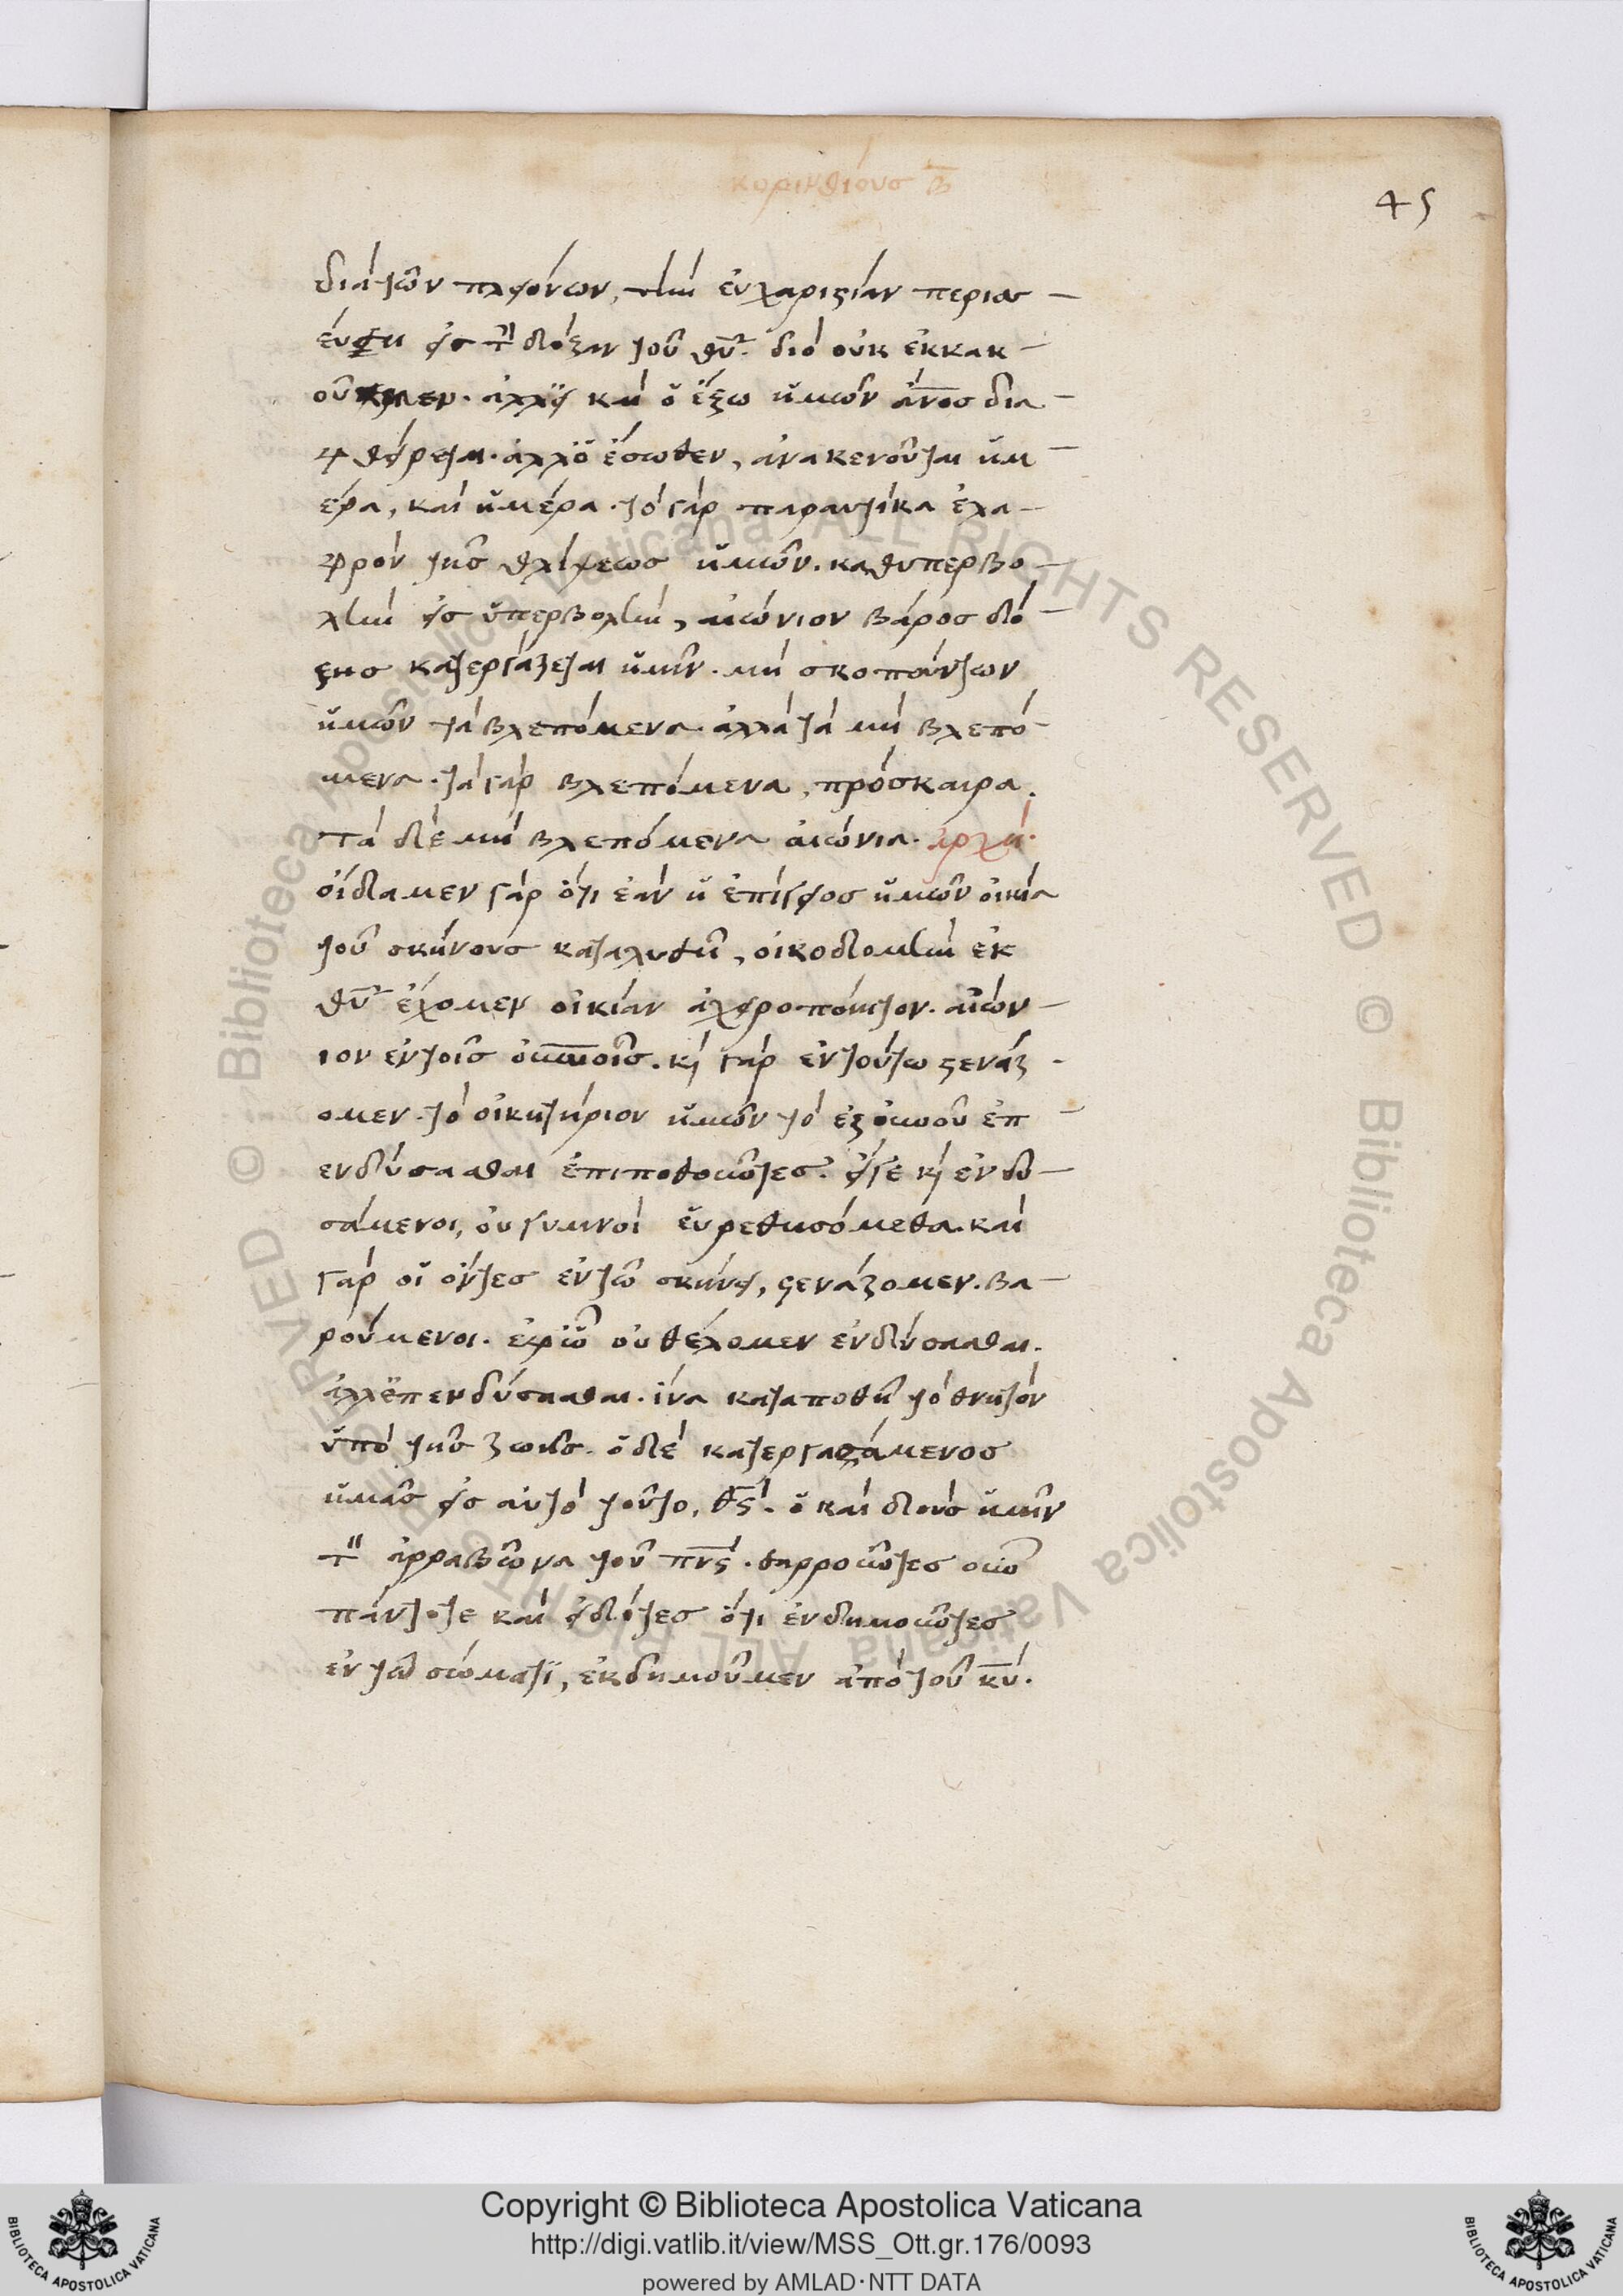 κορινθίους β
45
διὰ τῶν πλειόνων, τὴν ἐυχαριστίαν περισσ-
έυση εἰς τὴν δόξαν τοῦ θυ. διὸ οὐκ ἐκκακ-
οῦμεν. ἀλλ εἰ καὶ ὁ ἔξω ἡμῶν ἄνος δια-
φθείρεται. ἀλλ ὁ ἔσωθεν, ἀνακενοῦται ἡμ-
έρα, καὶ ἡμέρα. τὸ γὰρ παραυτίκα ἐλα-
φρὸν τῆς θλίψεως ἡμῶν. καθυπερβο-
λὴν εἰς ὑπερβολὴν, αἰώνιον βάρος δό-
ξης κατεργάζεται ἡμῖν. μὴ σκοπούντων
ἡμῶν τὰ βλεπόμενα. ἀλλὰ τὰ μὴ βλεπό-
μενα. τὰ γὰρ βλεπόμενα, πρόσκαιρα.
τὰ δὲ μὴ βλεπόμενα αἰώνια. ἀρχὴ.
οἴδαμεν γὰρ ὅτι ἐὰν ἡ ἐπίγειος ἡμῶν οἰκία
τοῦ σκήνους καταλυθῆ, οἰκοδομὴν ἐκ
θυ ἔχομεν οἰκίαν ἀχειροποίητον. αἰών-
ιον ἐν τοῖς οὐνοῖς. καὶ γὰρ ἐν τούτω στενάζ-
ομεν. τὸ οἰκητήριον ἡμῶν τὸ ἐξ οὐνοῦ ἐπ-
ενδύσασθαι ἐπιποθοῦντες. εἴγε καὶ ἐνδυ-
σάμενοι, ὀυ γυμνοὶ ἑυρεθησόμεθα. καὶ
γὰρ οἱ ὄντες ἐν τῶ σκήνει, στενάζομεν. βα-
ρούμενοι. ἐφ ὧ ὀυ θέλομεν ἐνδύσασθαι.
ἀλλ ἐπενδύσασθαι. ἵνα καταποθῆ τὸ θνητὸν
ὑπὸ τῆς ζωῆς. ὁ δὲ κατεργασάμενος
ἡμᾶς εἰς ἀυτὸ τοῦτο, θς. ὁ καὶ δοὺς ἡμῖν
τὸν ἀρραβῶνα τοῦ πνς. θαρροῦντες οὖν
πάντοτε καὶ εἰδότες ὅτι ἐνδημοῦντες
ἐν τῶ σώματι, ἐκδημοῦμεν ἀπὸ τοῦ κυ.
Copyright © Biblioteca Apostolica Vaticana
http://digi.vatlib.it/view/MSS_Ott.gr.176/0093
powered by AMLAD·NTT DATA